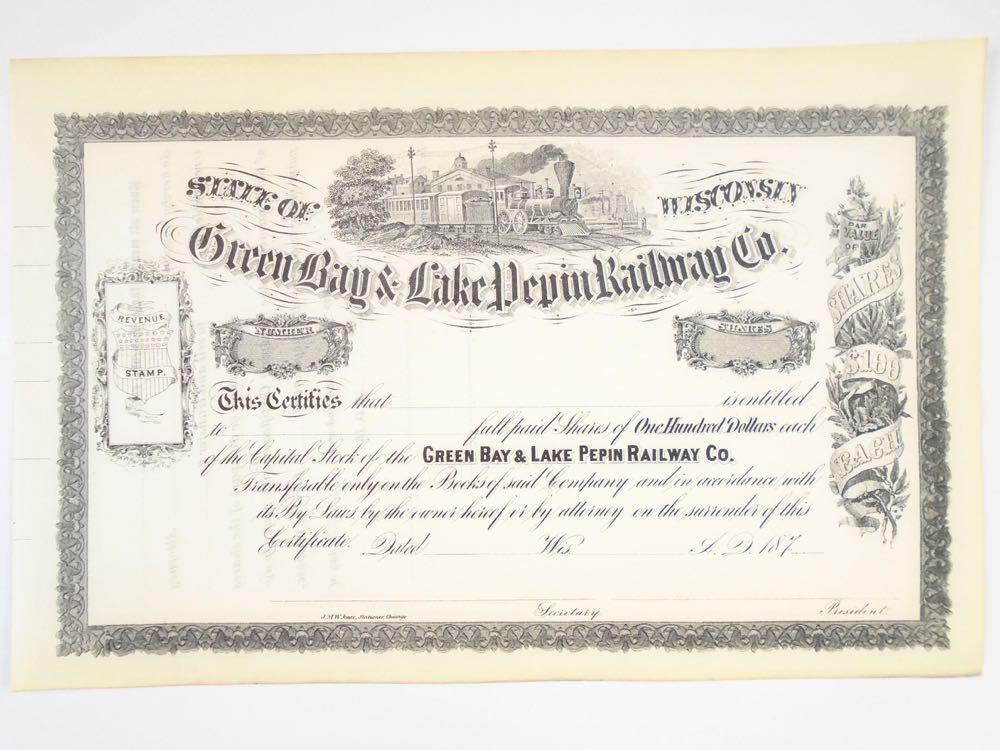 STATE OF WISCONSIN
Green Bay & Lake Pepin Railway Co.
NUMBER
SHARES
REVENUE
STAMP.
This Certifies that is entitled
to full paid Shares of One Hundred Dollars each
of the Capital Stock of the GREEN BAY & LAKE PEPIN RAILWAY CO.
Transferable only on the Books of said Company and in accordance with
its By Laws by the owner hereof or by attorney on the surrender of this
Certificate. Dated Wis. A. D. 187
Secretary
President.
J.M.W. Jones, Stationer, Chicago
PAR
VALUE
OF
SHARES
$100
EACH